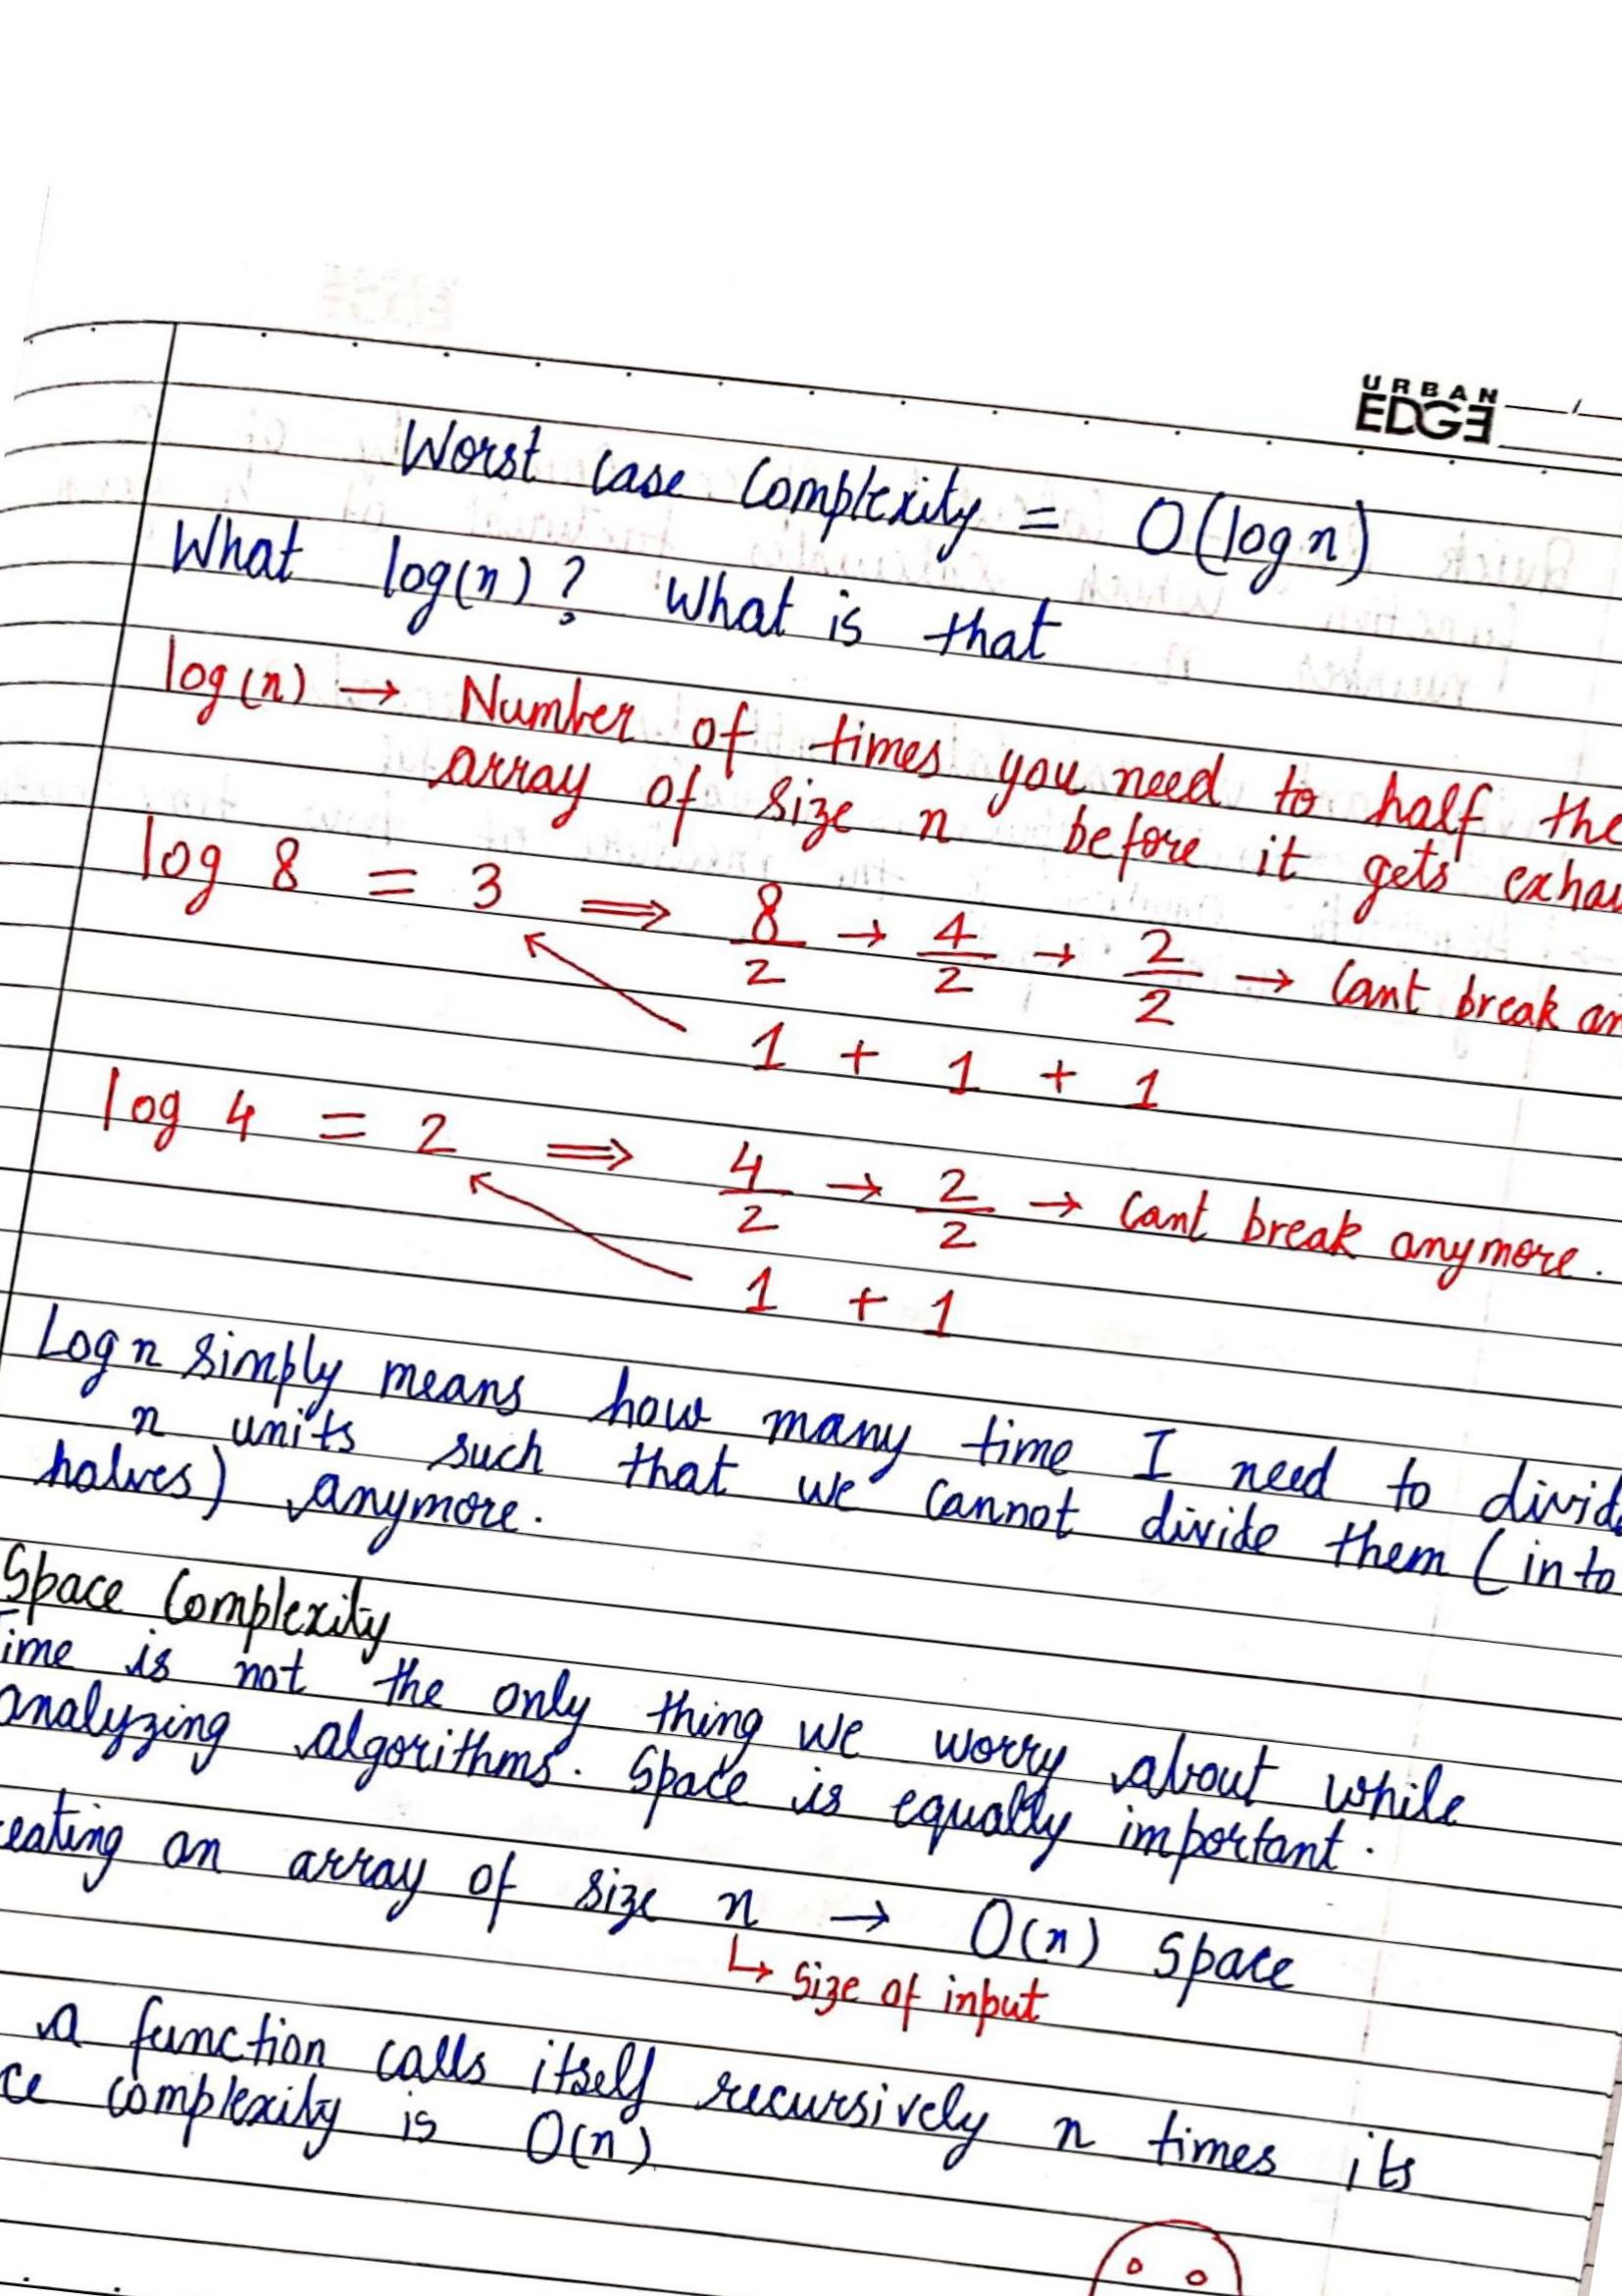 URBAN
EDGE
Worst Case Complexity = O(log n)
What log(n)? What is that
log(n) → Number of times you need to half the
array of size n before it gets
log 8 = 3 ⇒ 8/2 → 4/2 → 2/2 → Cant break
1 + 1 + 1
log 4 = 2 ⇒ 4/2 → 2/2 → Cant break anymore.
1 + 1
Log n simply means how many time I need to divide
n units such that we cannot divide them (into
halves) anymore.
Space Complexity
ime is not the only thing we worry about while
analyzing algorithms. Space is equally important.
eating an array of size n → O(n) Space
↳ size of input
a function calls itself recursively n times its
ce complexity is O(n)